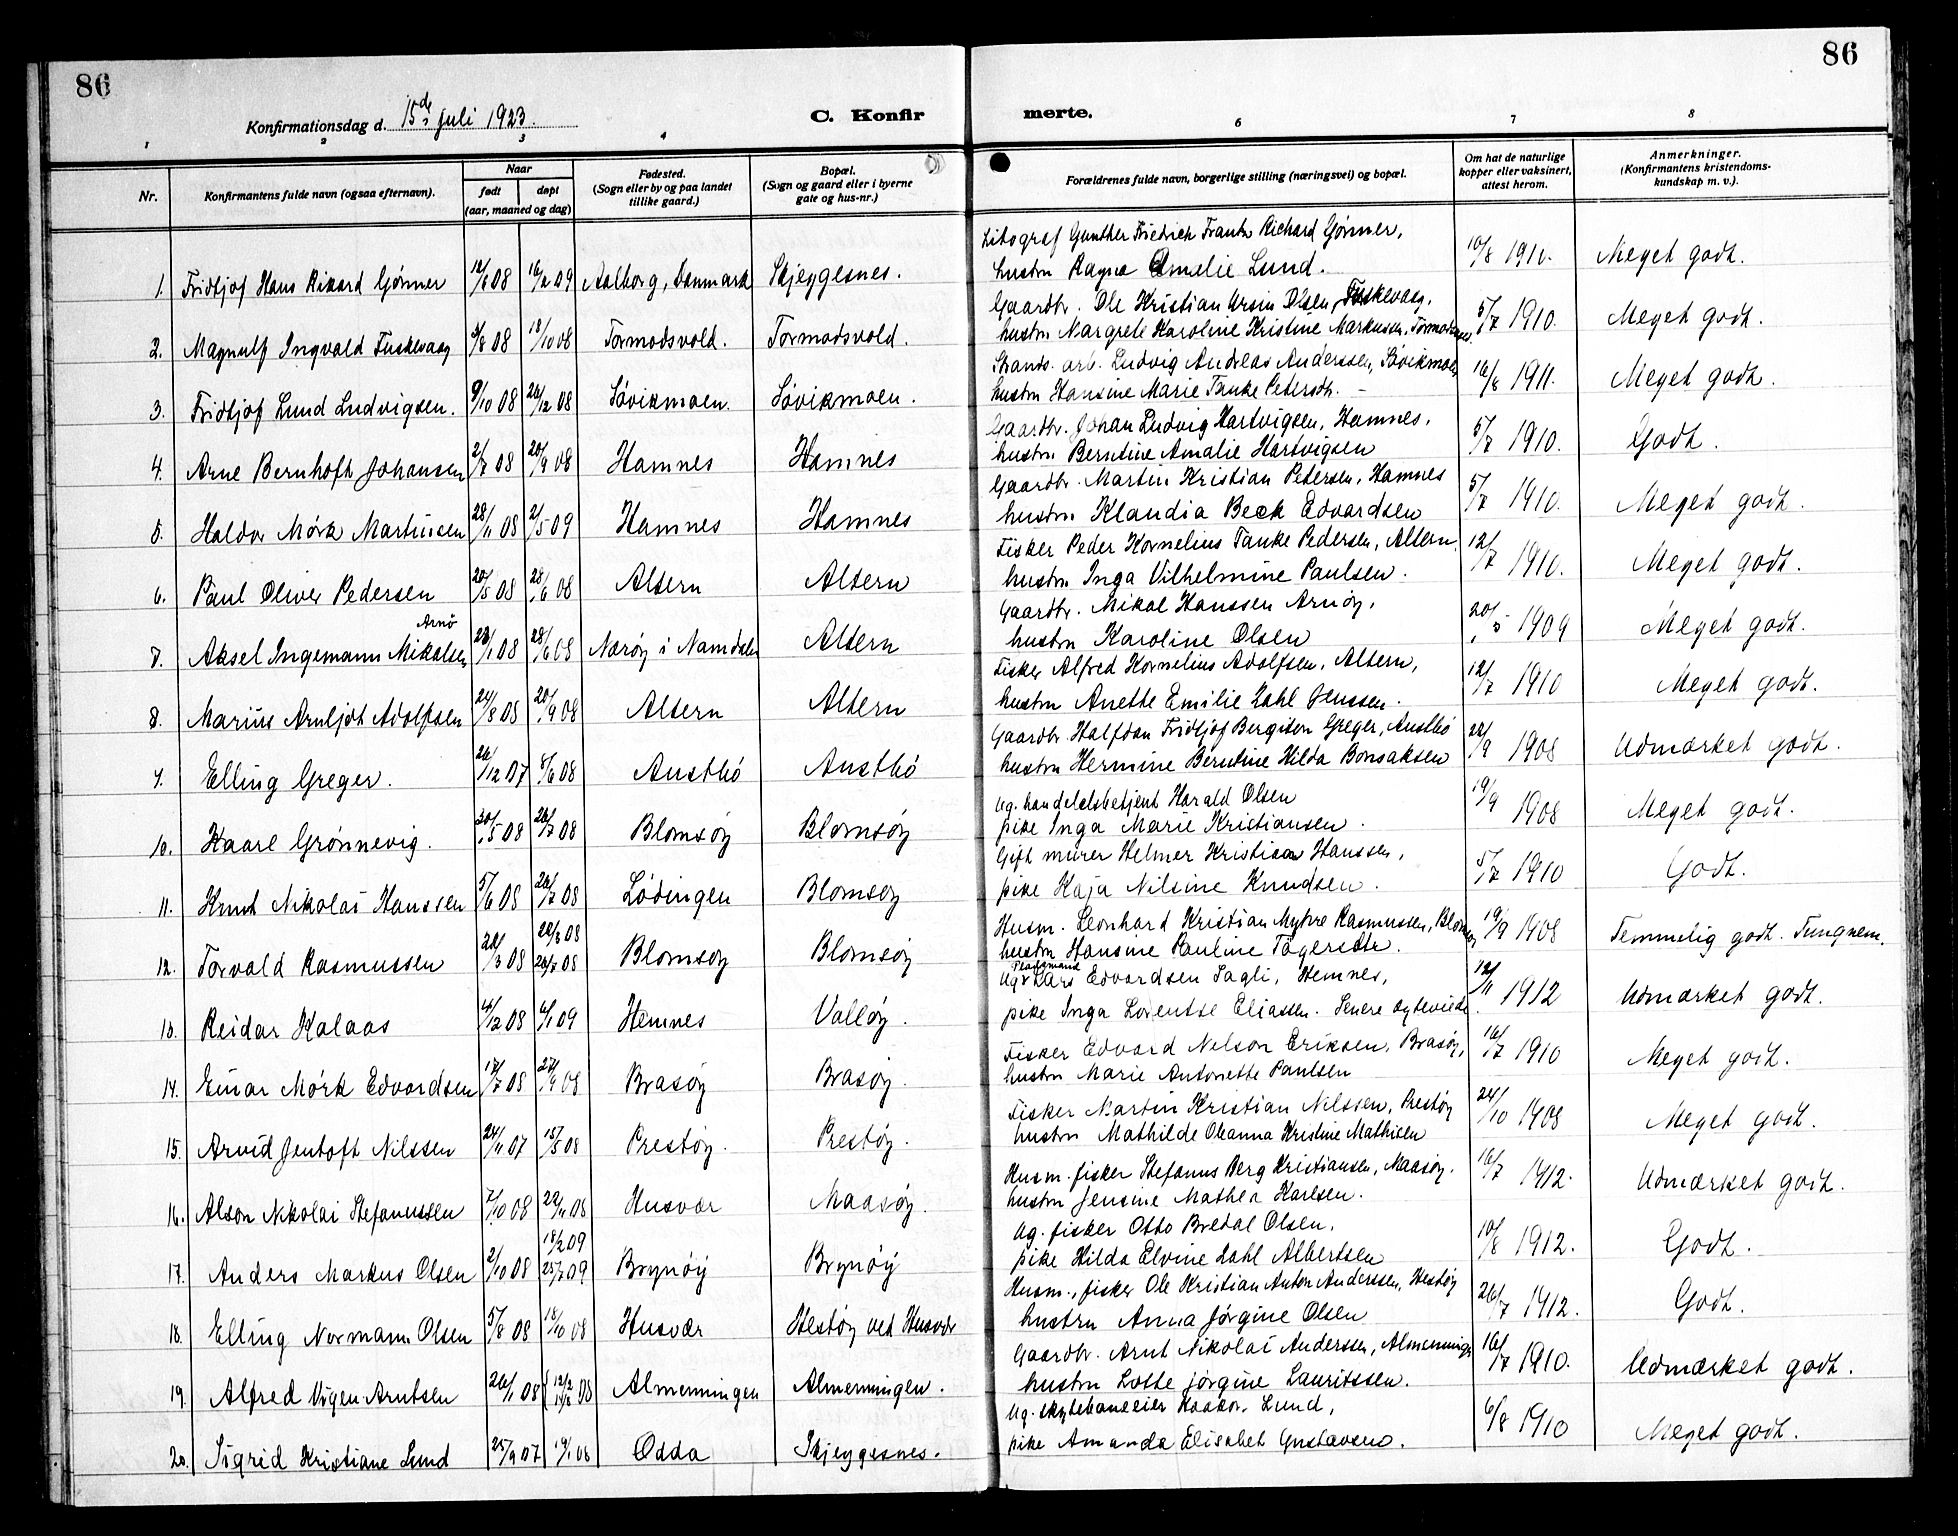 86
86
Konfirmationsdag d. 15de juli 1923.
C. Konfirmerte.
1 2 3 4 6 7 8
Nr.
Konfirmantens fulde navn (ogsaa efternavn).
Naar
født
døpt
(aar, maaned og dag)
Fødested.
(Sogn eller by og paa landet
tillike gaard.)
Bopæl.
(Sogn og gaard eller i byerne
gate og hus-nr.)
Forældrenes fulde navn, borgerlige stilling (næringsvei) og bopæl.
Om hat de naturlige
kopper eller vaksinert,
attest herom.
Anmerkninger.
(Konfirmantens kristendoms-
kundskap m. v.).
Litograf Gunther Friedrich Frantz Richard Gønner,
1. Fridtjof Hans Rikard Gønner 12/6 08 16/2 09 Aalborg, Danmark Skjeggesnes. hustru Ragna Amelie Lund. 10/8 1911. Meget godt.
Gaardbr. Ole Kristian Ursin Olsen, Fuskevaag,
2. Magnulf Ingvald Fuskevaag 3/8 08 18/10 08 Tormodsvold. Tormodsvold. hustru Nargrete Karoline Kristine Markussen, 5/7 1910. Meget godt.
Strands. arb. Ludvig Andreas Anderssen, Søvikmoen
3. Fridtjof Lund Ludvigsen. 9/10 08 26/12 08 Søvikmoen. Søvikmoen. hustru Hansine Marie Tanke Petersdtr. 16/8 1911. Meget godt.
Gaardbr. Johan Ludvig Hartvigsen, Hamnes,
4. Arne Bernhoft Johansen 2/7 08 20/9 08 Hamnes Hamnes hustru Berntine Amalie Hartvigsen 5/7 1910. Godt.
Gaardbr. Martin Kristian Petersen, Hamnes
5. Haldor Mørk Martinsen 28/11 08 2/5 09 Hamnes Hamnes hustru Klaudia Beck Edvardsen 5/7 1910. Meget godt.
Fisker Peder Kornelius Tanke Pedersen, Altern
6. Paul Oliver Pedersen 20/5 08 28/6 08 Altern Altern hustru Inga Vilhelmine Paulsen. 12/7 1910. Meget godt.
Gaardbr. Mikal Hanssen Arnøy,
Arnø
7. Aksel Ingemann Mikalsen 08 28/6 08 Nærøy i Namdalen Altern hustru Karoline Olsen 20/5 1909 Meget godt.
Fisker Alfred Kornelius Adolfsen, Altern,
8. Marius Arnljot Adolfsen 24/8 08 20/9 08 Altern Altern hustru Anette Emilie Dahl Jenssen. 12/7 1910 Meget godt.
Gaardbr. Halfdan Fridtjof Bergitson Greger, Austbø
9. Elling Greger. 26/12 07 8/6 08 Austbø Austbø hustru Hermine Berntine Hilda Bonsaksen 22/9 1908 Udmærket godt.
Ug. handelsbetjent Harald Olsen
10. Kaare Grønnevig. 30/5 08 26/7 08 Blomsøy Blomsøy pike Inga Marie Kristiansen. 19/9 1908 Meget godt.
Gift murer Helmer Kristian Hanssen,
11. Knut Nikolai Hanssen 5/6 08 26/7 08 Lødingen Blomsøy pike Kaja Nilsine Knudsen. 5/7 1910 Godt.
Husm. Leonhard Kristian Myhre Rasmussen, Blomsøy
22/3 08
12. Torvald Rasmussen 20/3 08 26/7 08 Blomsøy Blomsøy hustru Hansine Pauline Tøgersdtr. 19/9 1908 Temmelig godt. Tungnem.
Pladsmand
Ug. Lars Edvardsen Sagli, Hemnes,
13. Reidar Kalaas 4/12 08 6/1 09 Hemnes Valløy. pike Inga Lorentse Eliassen. Senere egteviede. 12/11 1912 Udmærket godt.
Fisker Edvard Nelson Eriksen, Brasøy,
14. Einar Mørk Edvardsen 17/7 08 27/9 08 Brasøy Brasøy. hustru Marie Antonette Paulsen 16/7 1910 Meget godt.
Fisker Martin Kristian Nilssen, Prestøy
15. Arvid Jentoft Nilssen 24/11 07 15/3 08 Prestøy. Prestøy. hustru Mathilde Oleanna Kristine Mathisen 24/10 1908 Meget godt.
Husm. fisker Stefanus Berg Kristiansen, Maasøy.
16. Alson Nikolai Stefanussen 7/10 08 22/11 08 Husvær Maasøy. hustru Jensine Mathea Karlsen. 16/7 1912. Udmærket godt.
Ug. fisker Otto Bredal Olsen,
18/2 09
17. Anders Markus Olsen 2/10 08 25/7 09 Brynøy Brynøy pike Hilda Elvine Dahl Albertsen 10/8 1912. Godt.
Husm., fisker Ole Kristian Anton Anderssen, Hestøy
18. Elling Normann Olsen 5/8 08 18/10 08 Husvær Hestøy ved Husvær hustru Anna Jørgine Olsen 26/7 1912. Godt.
Gaardbr. Arnt Nikolai Anderssen, Almenninge
19. Alfred Vigen Arntsen 26/1 08 12/2 08 Almenningen Almenningen. hustru Lotte Jørgine Lauritssen. 16/7 1910. Udmærket godt.
Ug. skytebaneeier Haakon Lund,
20. Sigrid Kristiane Lund 25/9 07 19/1 08 Odda Skjeggesnes. pike Amanda Elisabet Gustavsen. 6/8 1910 Meget godt.